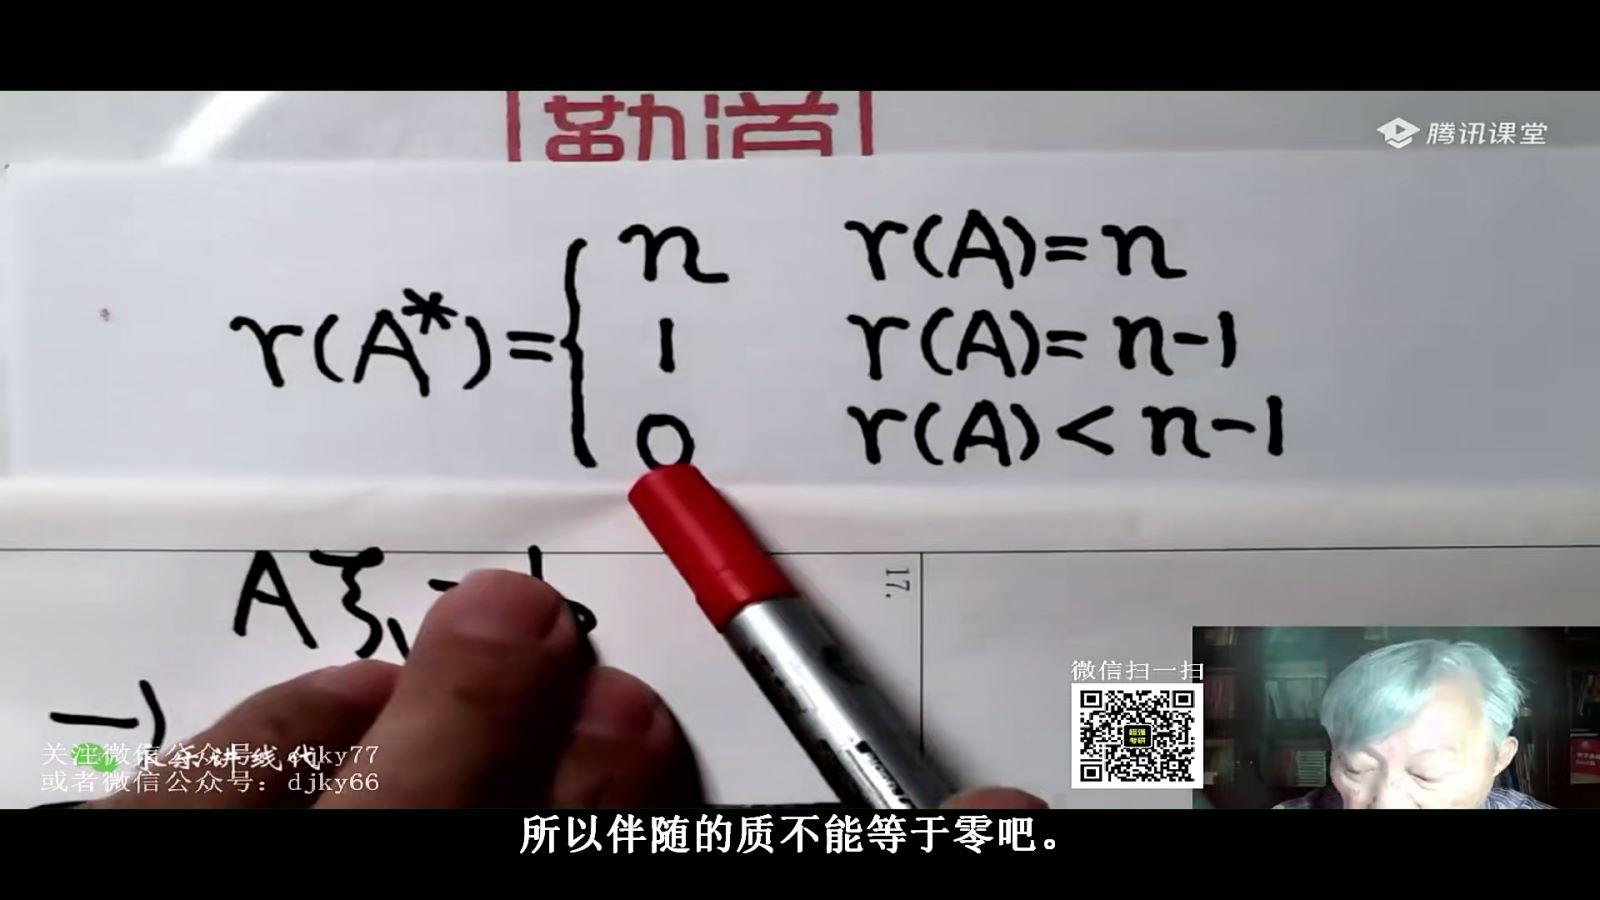 勤道
腾讯课堂
r(A*)= { n r(A)=n
1 r(A)=n-1
0 r(A)<n-1
Aξ₁
17.
微信扫一扫
超强
考研
讲线代
关注微信公众号: djky77
或者微信公众号: djky66
所以伴随的质不能等于零吧。